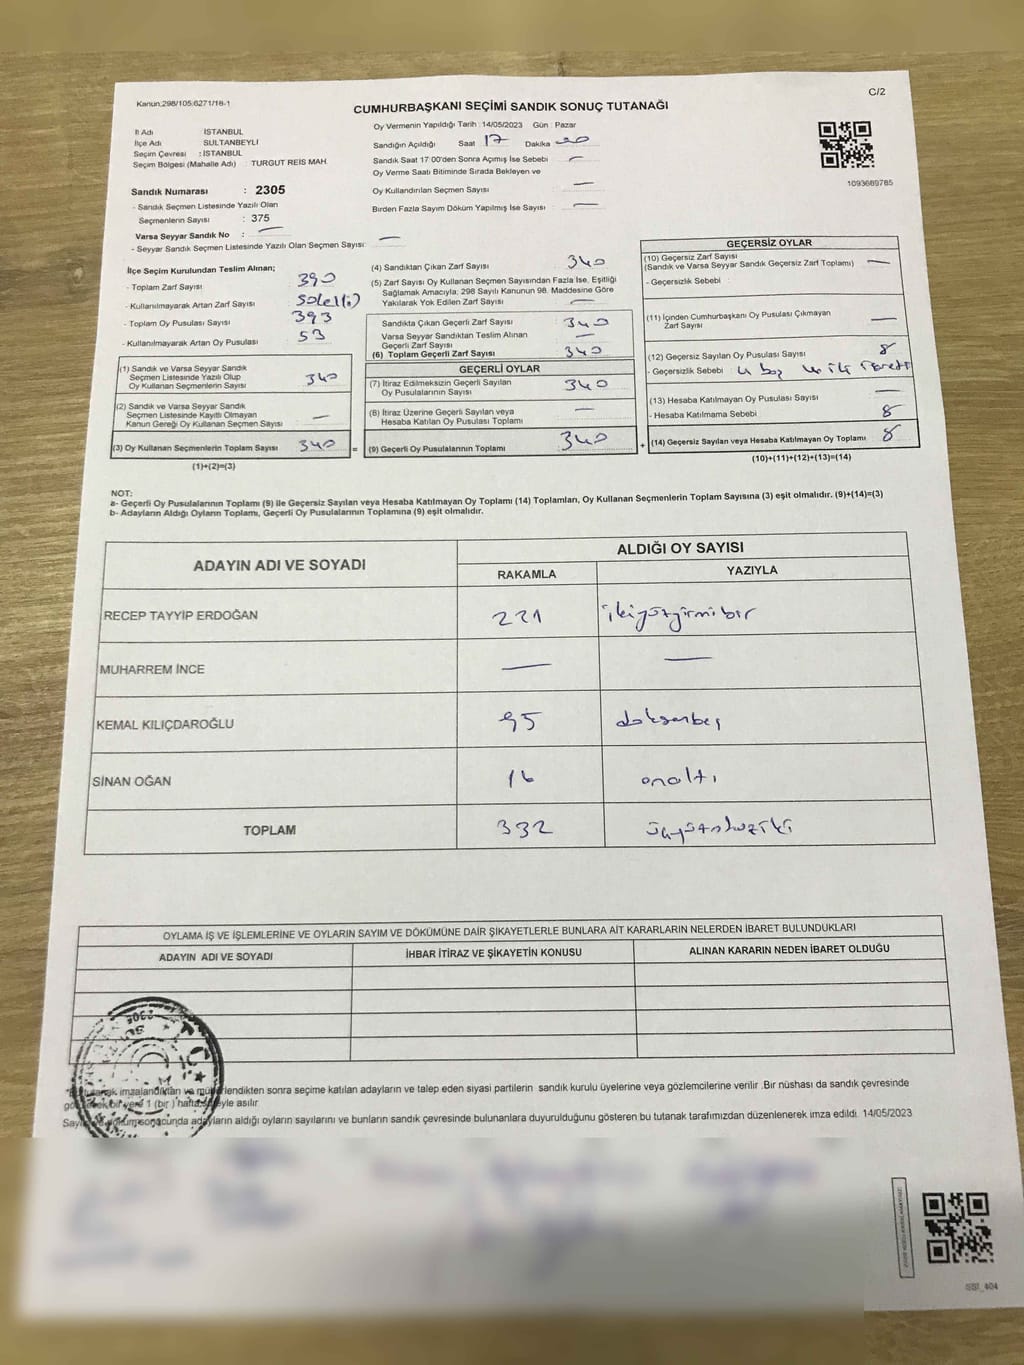 Kanun:298/105;6271/18-1
C/2
CUMHURBAŞKANI SEÇİMİ SANDIK SONUÇ TUTANAĞI
İl Adı : İSTANBUL
İlçe Adı : SULTANBEYLİ
Seçim Çevresi : İSTANBUL
Seçim Bölgesi (Mahalle Adı) : TURGUT REİS MAH.
Oy Vermenin Yapıldığı Tarih :14/05/2023 Gün : Pazar
Sandığın Açıldığı Saat 17 Dakika 00
Sandık Saat 17:00'den Sonra Açılmış İse Sebebi —
Oy Verme Saati Bitiminde Sırada Bekleyen ve
Oy Kullandırılan Seçmen Sayısı —
Birden Fazla Sayım Döküm Yapılmış İse Sayısı —
1093669785
Sandık Numarası : 2305
- Sandık Seçmen Listesinde Yazılı Olan
Seçmenlerin Sayısı : 375
Varsa Seyyar Sandık No : —
- Seyyar Sandık Seçmen Listesinde Yazılı Olan Seçmen Sayısı: —
İlçe Seçim Kurulundan Teslim Alınan;
- Toplam Zarf Sayısı 390
- Kullanılmayarak Artan Zarf Sayısı 50
- Toplam Oy Pusulası Sayısı 393
- Kullanılmayarak Artan Oy Pusulası 53
(1) Sandık ve Varsa Seyyar Sandık
Seçmen Listesinde Yazılı Olup
Oy Kullanan Seçmenlerin Sayısı 340
(2) Sandık ve Varsa Seyyar Sandık
Seçmen Listesinde Kayıtlı Olmayan
Kanun Gereği Oy Kullanan Seçmen Sayısı —
(3) Oy Kullanan Seçmenlerin Toplam Sayısı 340
(1)+(2)=(3)
(4) Sandıktan Çıkan Zarf Sayısı 340
(5) Zarf Sayısı Oy Kullanan Seçmen Sayısından Fazla İse, Eşitliği
Sağlamak Amacıyla; 298 Sayılı Kanunun 98. Maddesine Göre
Yakılarak Yok Edilen Zarf Sayısı —
Sandıkta Çıkan Geçerli Zarf Sayısı 340
Varsa Seyyar Sandıktan Teslim Alınan
Geçerli Zarf Sayısı —
(6) Toplam Geçerli Zarf Sayısı 340
GEÇERLİ OYLAR
(7) İtiraz Edilmeksizin Geçerli Sayılan
Oy Pusulalarının Sayısı 340
(8) İtiraz Üzerine Geçerli Sayılan veya
Hesaba Katılan Oy Pusulası Toplamı —
= (9) Geçerli Oy Pusulalarının Toplamı 340
GEÇERSİZ OYLAR
(10) Geçersiz Zarf Sayısı
(Sandık ve Varsa Seyyar Sandık Geçersiz Zarf Toplamı) —
- Geçersizlik Sebebi
(11) İçinden Cumhurbaşkanı Oy Pusulası Çıkmayan
Zarf Sayısı —
(12) Geçersiz Sayılan Oy Pusulası Sayısı 8
- Geçersizlik Sebebi 4 boş
(13) Hesaba Katılmayan Oy Pusulası Sayısı —
- Hesaba Katılmama Sebebi 8
+ (14) Geçersiz Sayılan veya Hesaba Katılmayan Oy Toplamı 8
(10)+(11)+(12)+(13)=(14)
NOT:
a- Geçerli Oy Pusulalarının Toplamı (9) ile Geçersiz Sayılan veya Hesaba Katılmayan Oy Toplamı (14) Toplamları, Oy Kullanan Seçmenlerin Toplam Sayısına (3) eşit olmalıdır. (9)+(14)=(3)
b- Adayların Aldığı Oyların Toplamı, Geçerli Oy Pusulalarının Toplamına (9) eşit olmalıdır.
ADAYIN ADI VE SOYADI
ALDIĞI OY SAYISI
RAKAMLA YAZIYLA
RECEP TAYYİP ERDOĞAN 221 ikiyüzyirmibir
MUHARREM İNCE — —
KEMAL KILIÇDAROĞLU 95 doksanbeş
SİNAN OĞAN 16 onaltı
TOPLAM 332 üçyüzotuziki
OYLAMA İŞ VE İŞLEMLERİNE VE OYLARIN SAYIM VE DÖKÜMÜNE DAİR ŞİKAYETLERLE BUNLARA AİT KARARLARIN NELERDEN İBARET BULUNDUKLARI
ADAYIN ADI VE SOYADI İHBAR İTİRAZ VE ŞİKAYETİN KONUSU ALINAN KARARIN NEDEN İBARET OLDUĞU
tutanak imzalandıktan ve mühürlendikten sonra seçime katılan adayların ve talep eden siyasi partilerin sandık kurulu üyelerine veya gözlemcilerine verilir .Bir nüshası da sandık çevresinde
bir yere 1 (bir ) hafta süreyle asılır.
Sayım ve döküm sonucunda adayların aldığı oyların sayılarını ve bunların sandık çevresinde bulunanlara duyurulduğunu gösteren bu tutanak tarafımızdan düzenlenerek imza edildi. 14/05/2023